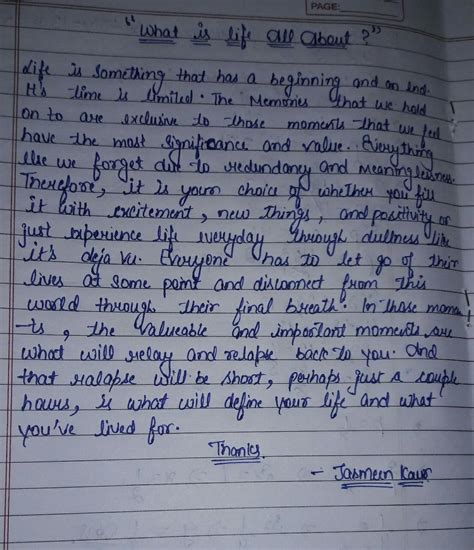 PAGE:
"What is life All About?"
Life is something that has a beginning and an end.
It's time is limited. The Memories that we hold
on to are exclusive to those moments that we feel
have the most significance and value. Everything
else we forget due to redundancy and meaninglessness.
Therefore, it is your choice of whether you fill
it with excitement, new things, and positivity or
just experience life everyday through dullness like
it's deja vu. Everyone has to let go of their
lives at some point and disconnect from this
world through their final breath. In those momen
-ts, the valueable and important moments are
what will relay and relapse back to you. And
that ralapse will be short, perhaps just a couple
hours, is what will define your life and what
you've lived for.
Thanks.
- Jasmeen Kaur